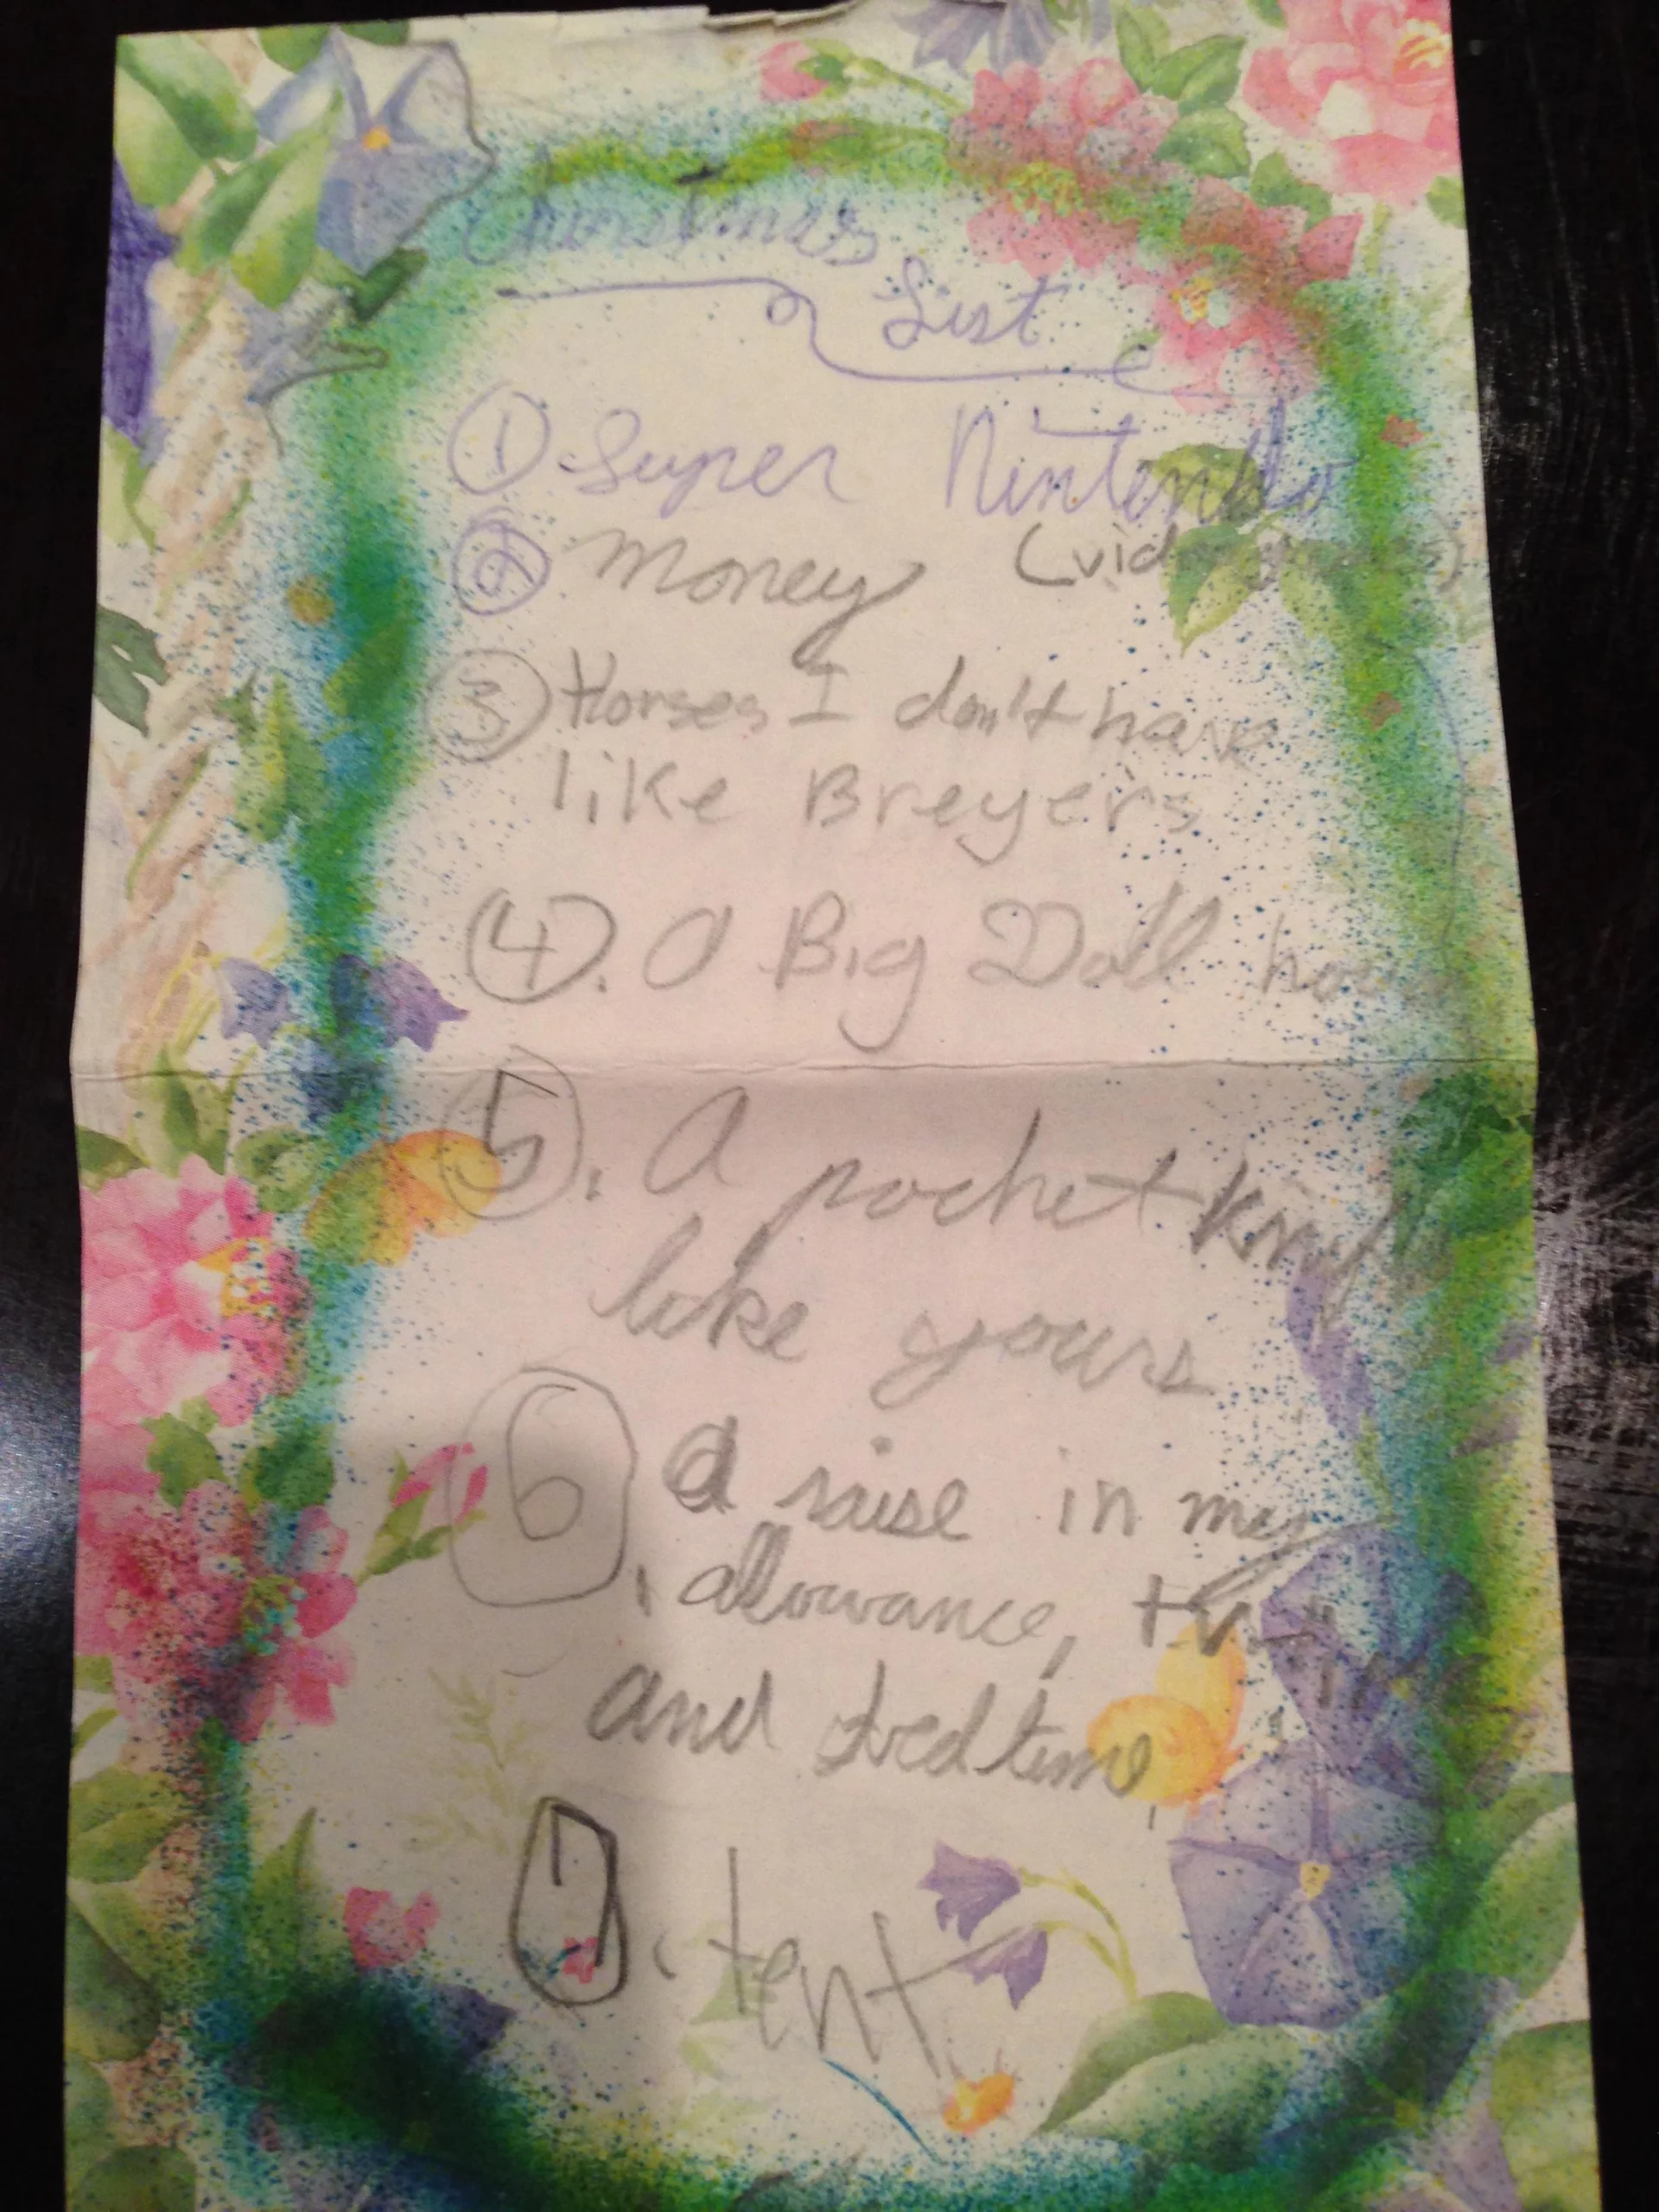 Christmas
List
① Super Nintendo
② Money
③ Horses I don't have
like Breyer's
④. A Big Doll
⑤. A pocket knife
like yours
⑥ a raise in my
allowance,
and bedtime,
⑦. tent